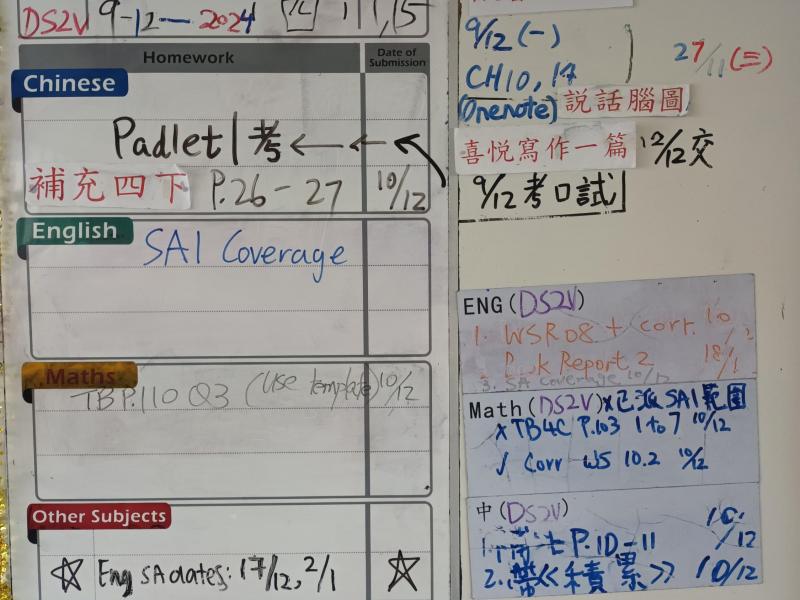 DS2V 9-12-2024
Homework
Date of Submission
Chinese
Padlet|考 ← ←
補充四下 P.26-27 10/12
English
SA1 Coverage
Maths
TB P.110 Q3 (Use template) 10/12
Other Subjects
☆ Eng SA dates: 17/12, 2/1 ☆
9/12 (一)
27/11 (三)
CH10, 14
(Onenote) 說話腦圖
喜悅寫作一篇 12/12交
9/12 考口試
ENG (DS2V)
1. WSR08 + corr. 10/12
Report 2 18/1
3. SA Coverage 10/12
Math (DS2V) x已派SA1範圍
x TB4C P.103 1 to 7 10/12
√ Corr WS 10.2 10/12
中 (DS2V)
1. P.10-11 10/12
2. 帶《積累》 10/12